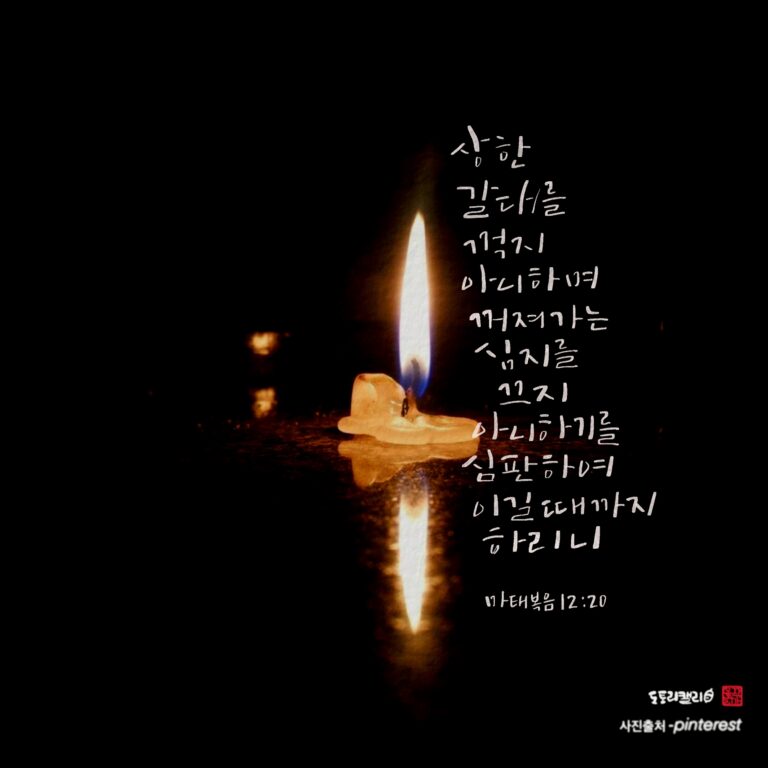 상한
갈대를
꺽지
아니하며
꺼져가는
심지를
끄지
아니하기를
심판하여
이길 때까지
하리니
마태복음 12:20
도토리캘리
사진출처 -pinterest